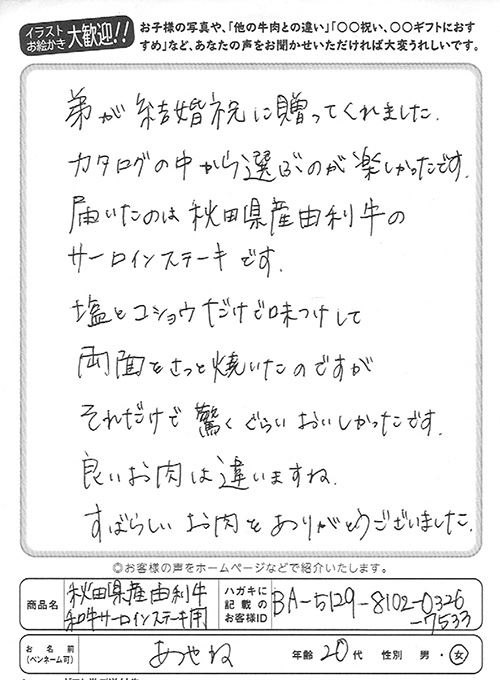 イラスト
お絵かき 大歓迎!!
お子様の写真や、「他の牛肉との違い」「〇〇祝い、〇〇ギフトにおす
すめ」など、あなたの声をお聞かせいただければ大変うれしいです。
弟が結婚祝に贈ってくれました.
カタログの中から選ぶのが楽しかったです.
届いたのは秋田県産由利牛の
サーロインステーキです.
塩とコショウだけで味つけして
両面をさっと焼いたのですが
それだけで驚くぐらいおいしかったです.
良いお肉は違いますね.
すばらしいお肉をありがとうございました.
◎お客様の声をホームページなどで紹介いたします。
商品名 秋田県産由利牛
和牛サーロインステーキ用
ハガキに
記載の
お客様ID
BA-5129-8102-0326
-7533
お名前
(ペンネーム可)
あやね
年齢 20代 性別 男・女